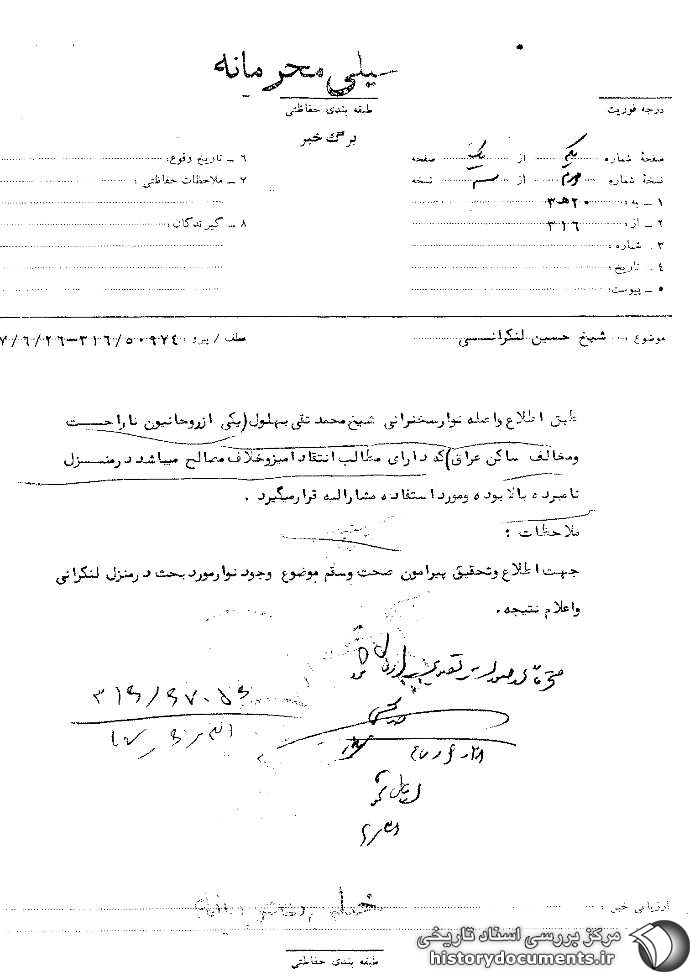 خیلی محرمانه
طبقه بندی حفاظتی
درجه فوریت
برگ خبر
صفحهٔ شماره یکم از یک صفحه
نسخهٔ شماره دوم از سه نسخه
۱ ـ به : ۲۰ هـ ۳
۲ ـ از : ۳۱۶
۳ ـ شماره :
٤ ـ تاریخ :
٥ ـ پیوست:
۶ ـ تاریخ وقوع:
۷ ـ ملاحظات حفاظتی :
۸ ـ گیرندگان:
موضوع : شیخ حسین لنکرانی
عطف / پیرو : ۳۱۶/٥۰۹۷٤ـ۷/۶/۲۶
طبق اطلاع واصله نوار سخنرانی شیخ محمد تقی بهلول(یکی ازروحانیون ناراحت
ومخالف ساکن عراق)که دارای مطالب انتقاد امیزوخلاف مصالح میباشد درمنزل
نامبرده بالا بوده ومورد استفاده مشارالیه قرارمیگیرد .
ملاحظات :
جهت اطلاع وتحقیق پیرامون صحت وسقم موضوع وجود نوارمورد بحث درمنزل لنکرانی
واعلام نتیجه.
ارزیابی خبر :
طبقه بندی حفاظتی
مرکز بررسی اسناد تاریخی
historydocuments.ir